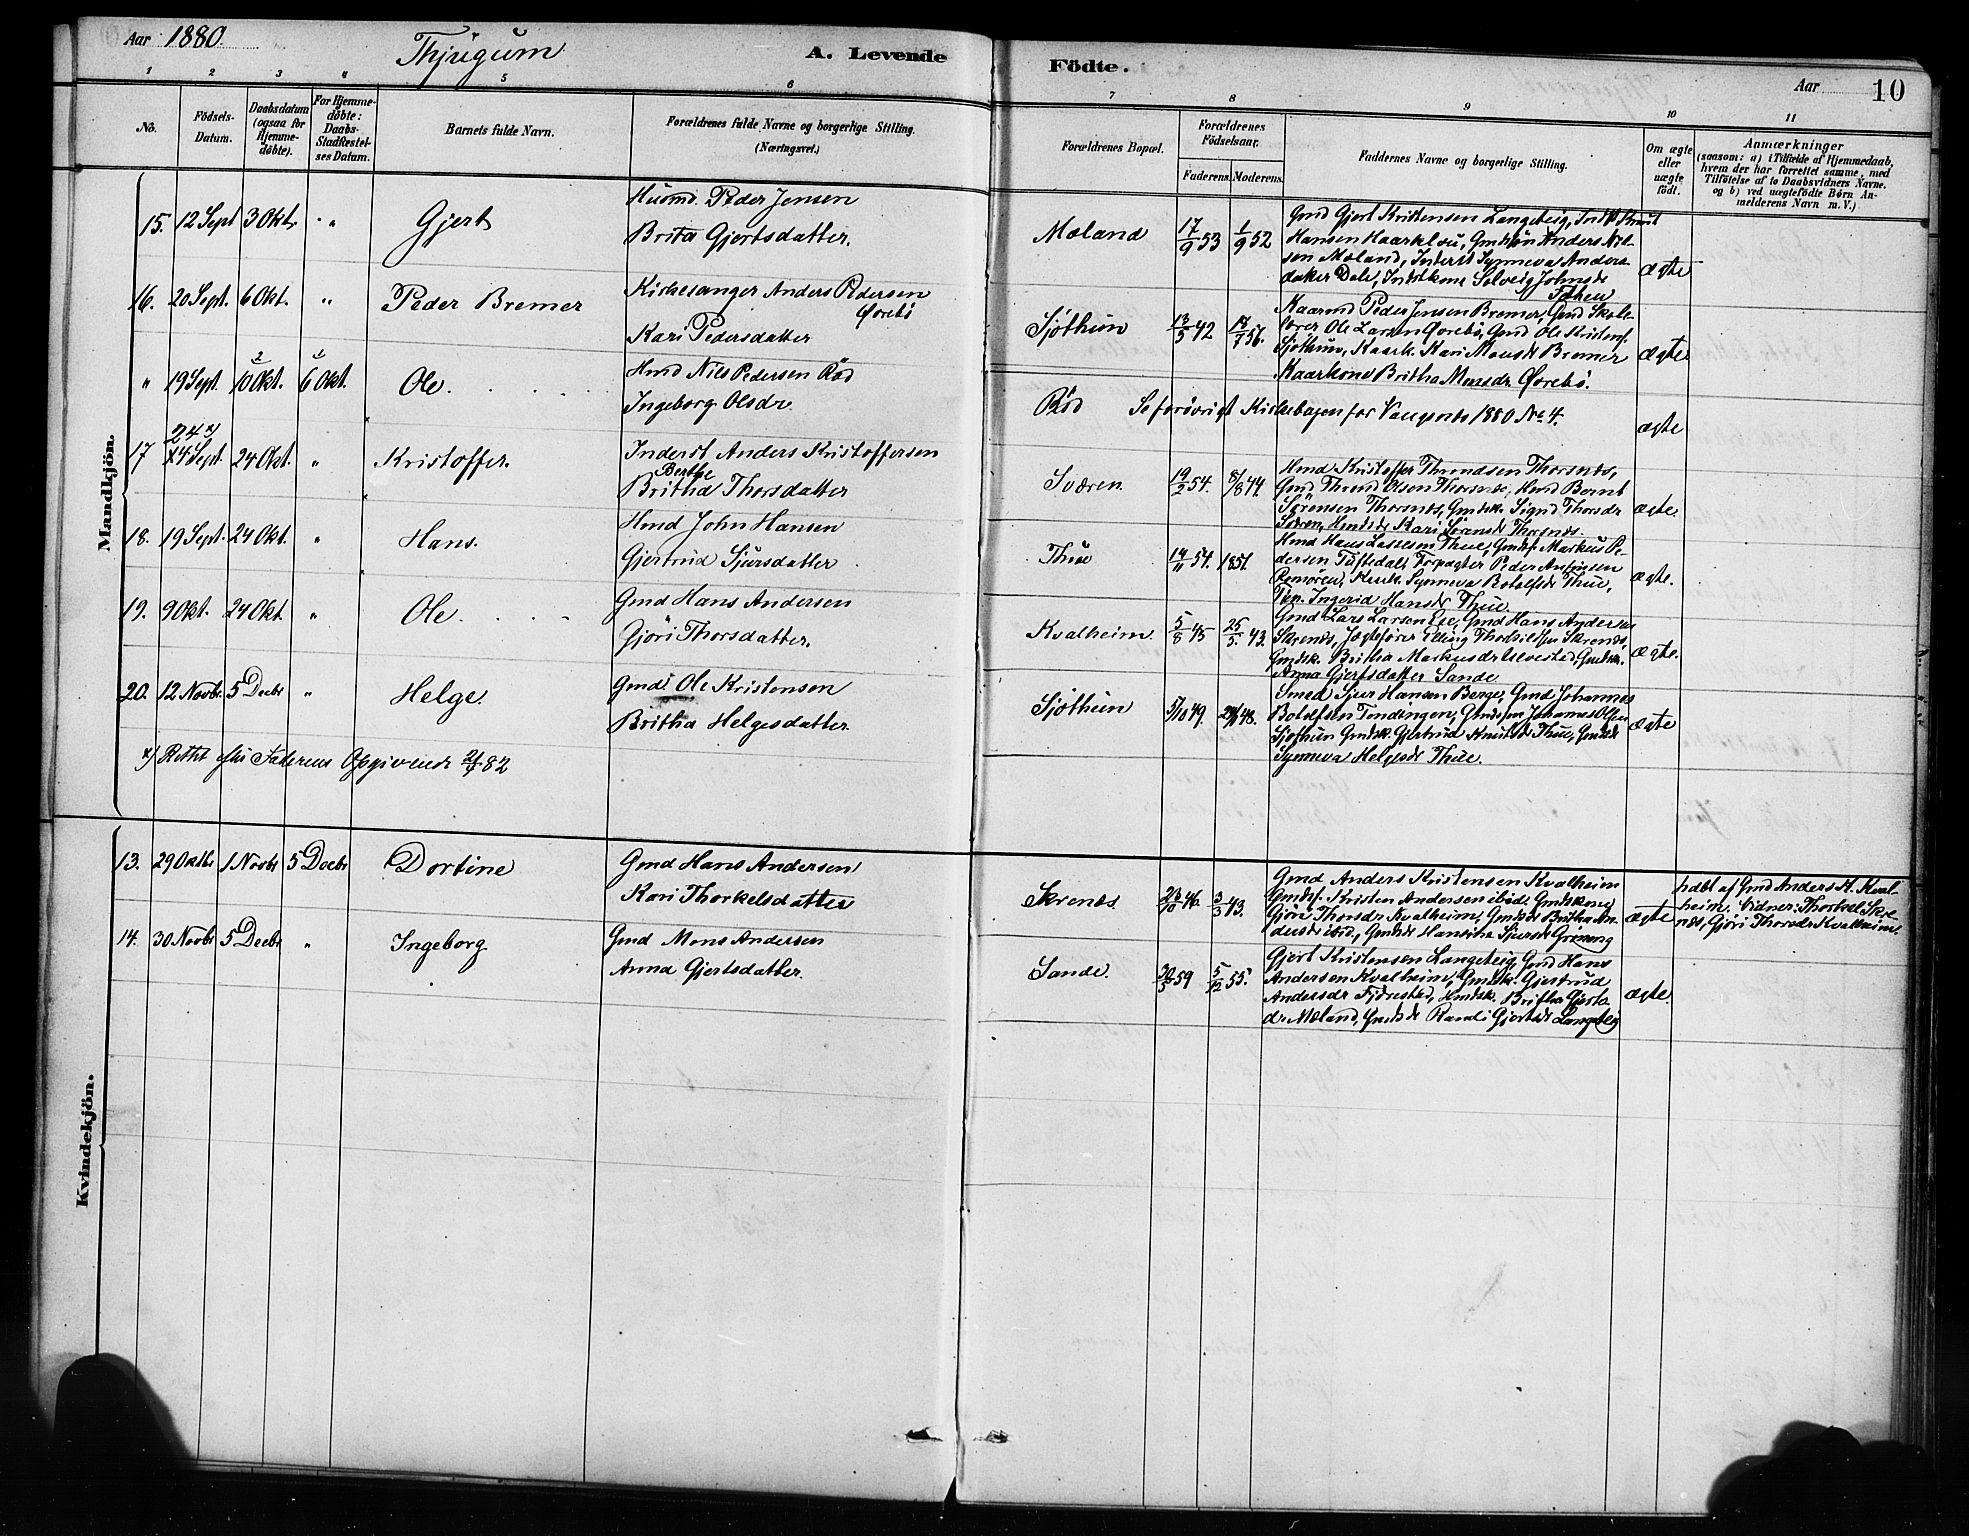 Aar 1880.
Thjugum
A. Levende Födte.
Aar
10
1 2 3 4 5 6 7 8 9 10 11
No.
Födsels-
Datum.
Daabsdatum
(ogsaa for
Hjemme-
döbte).
For Hjemme-
döbte:
Daabs-
Stadfæstel-
ses Datum.
Barnets fulde Navn.
Forældrenes fulde Navne og borgerlige Stilling.
(Næringsvei.)
Forældrenes Bopæl.
Forældrenes
Födselsaar.
Faderens. Moderens.
Faddernes Navne og borgerlige Stilling.
Om ægte
eller
uægte
födt.
Anmærkninger
(saasom: a) i Tilfælde af Hjemmedaab,
hvem der har forrettet samme, med
Tilföielse af to Daabsvidners Navne.
og b) ved uægtefödte Börn An-
melderens Navn m. V.)
Mandkjön.
15. 12 Sept 3 Okt. " Gjert
Husmd. Peder Jensen
Brita Gjertsdatter.
Mæland 17/9 53 1/9 52
Gmd Gjert Kristensen Langeteig, Indst Knut
Hansen Haarklou, Gmdsön Anders Nil-
sen Mæland, Inderst Synneva Anders-
datter Dale, Indstkone Solveig Johnsdr
ægte
16. 20 Sept. 6 Okt. " Peder Bremer
Kirkesanger Anders Pedersen
Øvrebö
Kari Pedersdatter
Sjöthun 13/5 42 17/7 56.
Kaarmd Peder Jensen Bremer, Gmd Skole-
lærer Ole Larsen Qvrebö, Gmd Ole Kristens.
Sjöthun, Kaark. Kari Monsdr Bremer
Kaarkone Britha Monsdr Øvrebö.
ægte
" 19 Sept. 10 Okt. 6 Okt. Ole.
Hmd Nils Pedersen Röd
Ingeborg Olsdr.
Röd Se forövrigt Kirkebogen for Vangsnes 1880 No 4.
ægte
24 x)
17 14 Sept. 24 Okt. " Kristoffer.
Inderst Anders Kristoffersen
Berthe
Britha Thorsdatter
Sværen 19/2 54. 8/8 44.
Hmd Kristoffer Throndsen Thorsnes,
Gmd Thrond Olsen Thorsnes, Hmd Bernt
Sörensen Thorsnes, Gmdsk. Signd Thorsdr
Sværen, Hmdsdr Kari Sörensdr Thorsnes.
ægte.
18. 19 Sept. 24 Okt. " Hans.
Hmd John Hansen
Gjertrud Sjursdatter
Thue 14/11 54. 1851.
Hmd Hans Lassesen Thue, Gmdsf. Markus Pe-
dersen Tuftedal, Forpagter Peder Anfinsen
Rpmören, Hmdk. Synneva Botolfsdr Thue,
Pige. Ingerid Hansdr Thue.
ægte.
19. 9 Okt. 24 Okt. " Ole.
Gmd Hans Andersen
Gjöri Thorsdatter.
Kvalheim. 5/8 45 25/5. 43.
Gmd Lars Larsen Ese, Gmd Hans Andersen
Skrenes, Jægtefører Elling Thorkildsen Skrenes,
Gmdsk. Britha Markusdr Ulvestad, Gmdsk.
Anna Gjertsdatter Sande
ægte.
20. 12 Novbr 5 Decbr " Helge.
Gmd. Ole Kristensen
Britha Helgesdatter.
Sjöthun 5/10 49.
Smed Sjur Hansen Berge, Gmd Johannes
Botolfsen Tendingen, Gmdssön Johannes Olsen
Sjöthun Gmdsk. Gjertrud Knutsdr Thue, Gmdsdr
Synneva Helgesdr Thue.
ægte
x) Rettet efter Faderens Opgivende 2/7 82
Kvindekjön.
13. 29 Oktbr 1 Novbr 5 Decbr Dortine
Gmd Hans Andersen
Kari Thorkelsdatter
Skrenes 46. 3/3 43.
Gmd Anders Kristensen Kvalheim
Gmdsf. Kristen Andersen ibid. Gmdskone
Gjöri Thorsdr Kvalheim, Gmdsdr Britha An-
dersdr ibid, Gmdsdr Hansine Sjursdr Gröneng
ægte
hdbt af Gmd Anders K. Kval-
heim. Vidner: Thorkel Skre-
nes, Gjöri Thorsdr Kvalheim.
14. 30 Novbr 5 Decbr " Ingeborg
Gmd Mons Andersen
Anna Gjertsdatter.
Sande. 30/5 59 5/12 55.
Gjert Kristensen Langeteig, Gmd Hans
Andersen Kvalheim, Gmdsk. Gjertrud
Andersdr Fjörestad, Hmdsk. Britha Gjerts-
dr Mæland, Gmdsdr Randi Gjertsdr Langeteig
ægte.